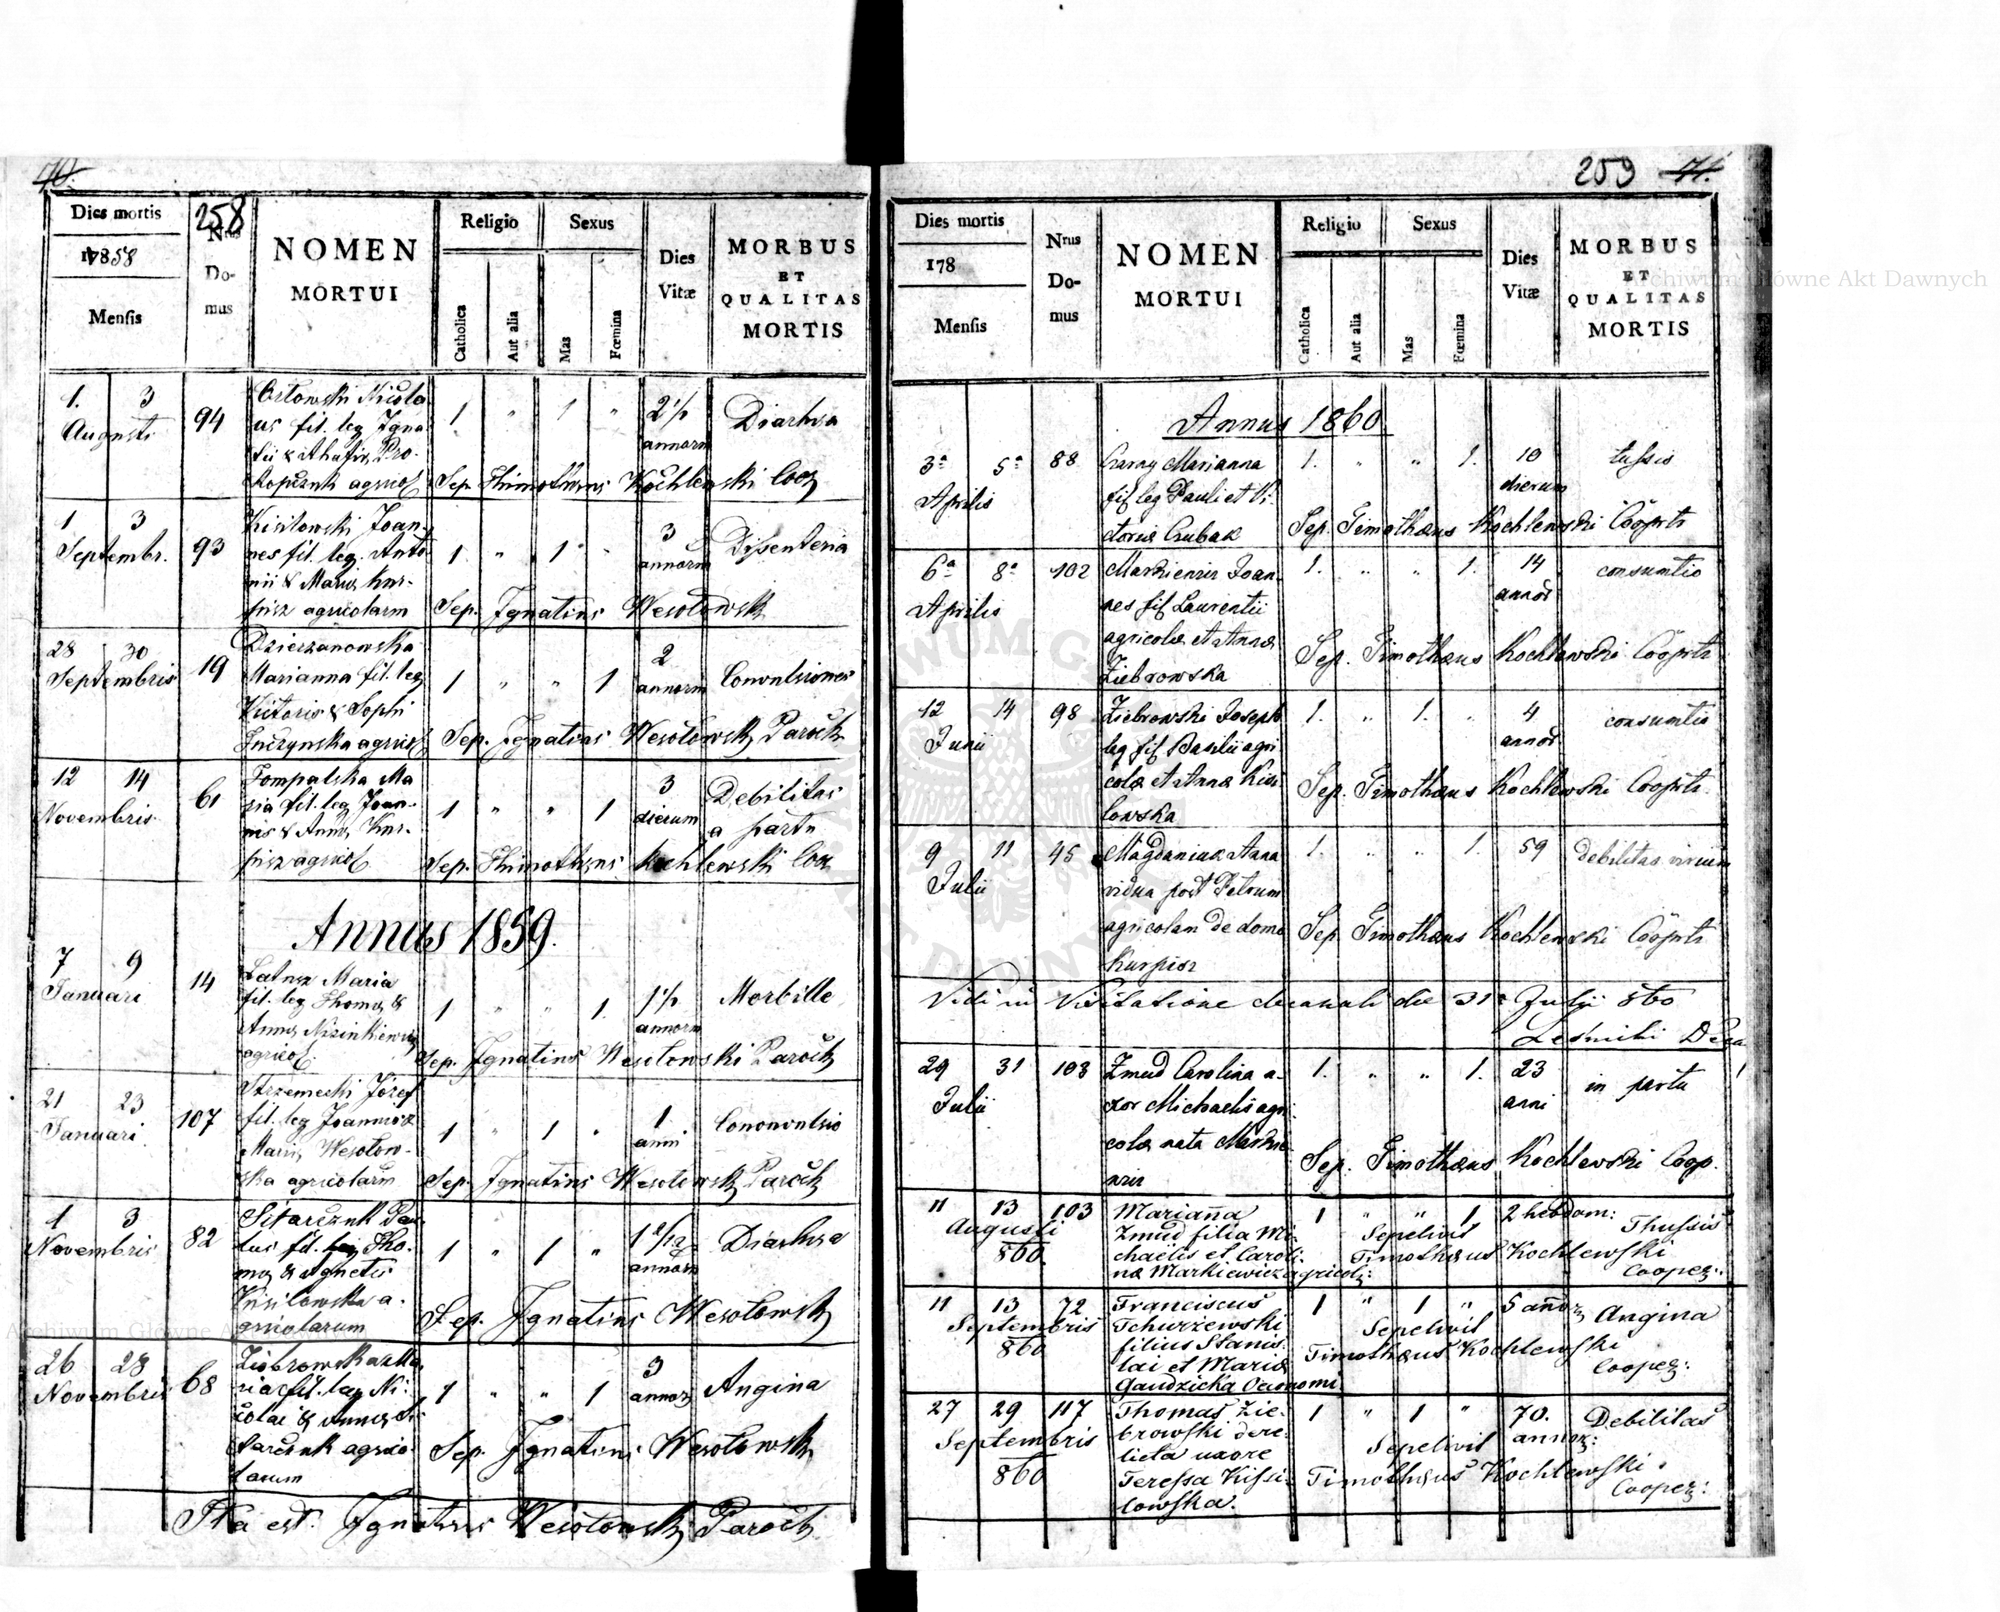 70.
258
Dies mortis
17858
Mensis
Nrus
Do-
mus
NOMEN
MORTUI
Religio
Catholica
Aut alia
Sexus
Mas
Fœmina
Dies
Vitæ
MORBUS
ET
QUALITAS
MORTIS
1. 3
Augusti
94
Orlowski Nicola
us fil. leg Igna
tii &
agricol
1 " 1 "
2½
annorum
Diarhea
Sep. Thimotheus Kochlewski Coop
1 3
Septembr.
93
Kisilowski Joan-
nes fil. leg. Anto
nii & Maria Kur-
pisz agricolarm
1. " 1 "
3
annorm
Dissenteria
Sep. Ignatius Wesołowski
28 30
Septembris
19
Dzierzanowska
Marianna fil. leg
Victoris & Sophi
agricol
1 " " 1
2
annorm
Convulsiones
Sep. Ignatius Wesołowski Paroch
12 14
Novembris
61
Tompalska Ma
ria fil. leg Joan-
nis & Anna Kur-
pisz agricol
1 " " 1
3
dierum
Debilitas
a partu
Sep. Thimotheus Kochlewski Coo
Annus 1859.
7 9
Januari
14
Maria
fil. leg Thoma &
Anna
agricol
1 " " 1.
1½
annorm
Morbille
Sep. Ignatius Wesołowski Paroch
21 23
Januari
107
Strzemecki Józef
fil. leg Joannis &
Maria Wesołow-
ska agricolarm
1 " 1 "
1
anni
Cononvulsio
Sep. Ignatius Wesołowski Paroch
1 3
Novembris
82
Sitarczuk Pau
lus fil. leg Tho-
ma & Agnetis
Kisilowska a-
gricolarum
1 " 1 "
annorm
Diarhea
Sep. Ignatius Wesołowski
26 28
Novembris
68
Ziobrowska Ma
ria fil. leg Ni-
colai & Anna Si
tarczuk agrico
larum
1 " " 1
3
annor
Angina
Sep. Ignatius Wesołowski
Ita est. Ignatius Wesołowski Paroch
259 71.
Dies mortis
178
Mensis
Nrus
Do-
mus
NOMEN
MORTUI
Religio
Catholica
Aut alia
Sexus
Mas
Fœmina
Dies
Vitæ
MORBUS
ET
QUALITAS
MORTIS
Annus 1860
3a 5a
Aprilis
88
Marianna
fil leg Pauli et Vi
ctoria
1. " " 1.
10
dierum
tussis
Sep. Timothæus Kochlewski Cooprtr
6a 8a
Aprilis
102
Markiewicz Joan-
nes fil Laurentii
agricolæ et Annæ
Ziebrowska
1. " " 1.
14
annor
consuntio
Sep. Timothæus Kochlewski Cooprtr
12 14
Junii
98
Ziebrowski Joseph
leg fil Basilii agri
colæ et Annæ Kisi
lowska
1. " 1. "
4
annor
consuntio
Sep. Timothæus Kochlewski Cooprtr
9 11
Julii
45
Magdaniuk Anna
vidua post Petrum
agricolam de domo
Kurpisz
1. " " 1.
59
debilitas virium
Sep. Timothæus Kochlewski Cooprtr
Vidi in Visitatione decanali die 31a Julii 860
29 31
Julii
103
Zmud Carolina u-
xor Michaelis agri
colæ nata Markie
wicz
1. " " 1.
23
anni
in partu
Sep. Timothæus Kochlewski Coop.
11 13
Augusti
860.
103
Marianna
Zmud filia Mi-
chaelis et Caroli-
na Markiewicz agricol:
1 " " 1
2 hebdom:
Thussis
Sepelivit
Timothæus Kochlewski
Cooper:
11 13
Septembris
860
72
Franciscus
Tchurzewski
filius Stanis-
lai et Maria
Gaudzicka Oeconomi
1 " 1 "
5 annor
Angina
Sepelivit
Timothæus Kochlewski
Cooper:
27 29
Septembris
860
117
Thomas Zie-
browski dere-
licta uxore
Teressa Kissi-
lowska.
1 " 1 "
70.
annor:
Debilitas
Sepelivit
Timothæus Kochlewski
Cooper:
Archiwum Główne Akt Dawnych